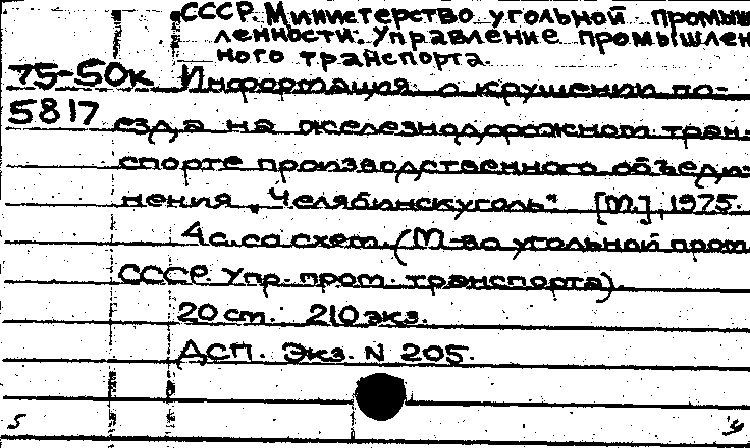 СССР. Министерство угольной промыш
ленности. Управление промышлен
ного транспорта.
75-50к Информация о крушении по-
5817 езда на железнодорожном тран-
спорте производственного объеди-
нения „Челябинскуголь“ [М.], 1975.
4 с. со схем. (М-во угольной пром
СССР. Упр. пром. транспорта).
20 ст. 210 экз.
ДСП. Экз. N 205.
5